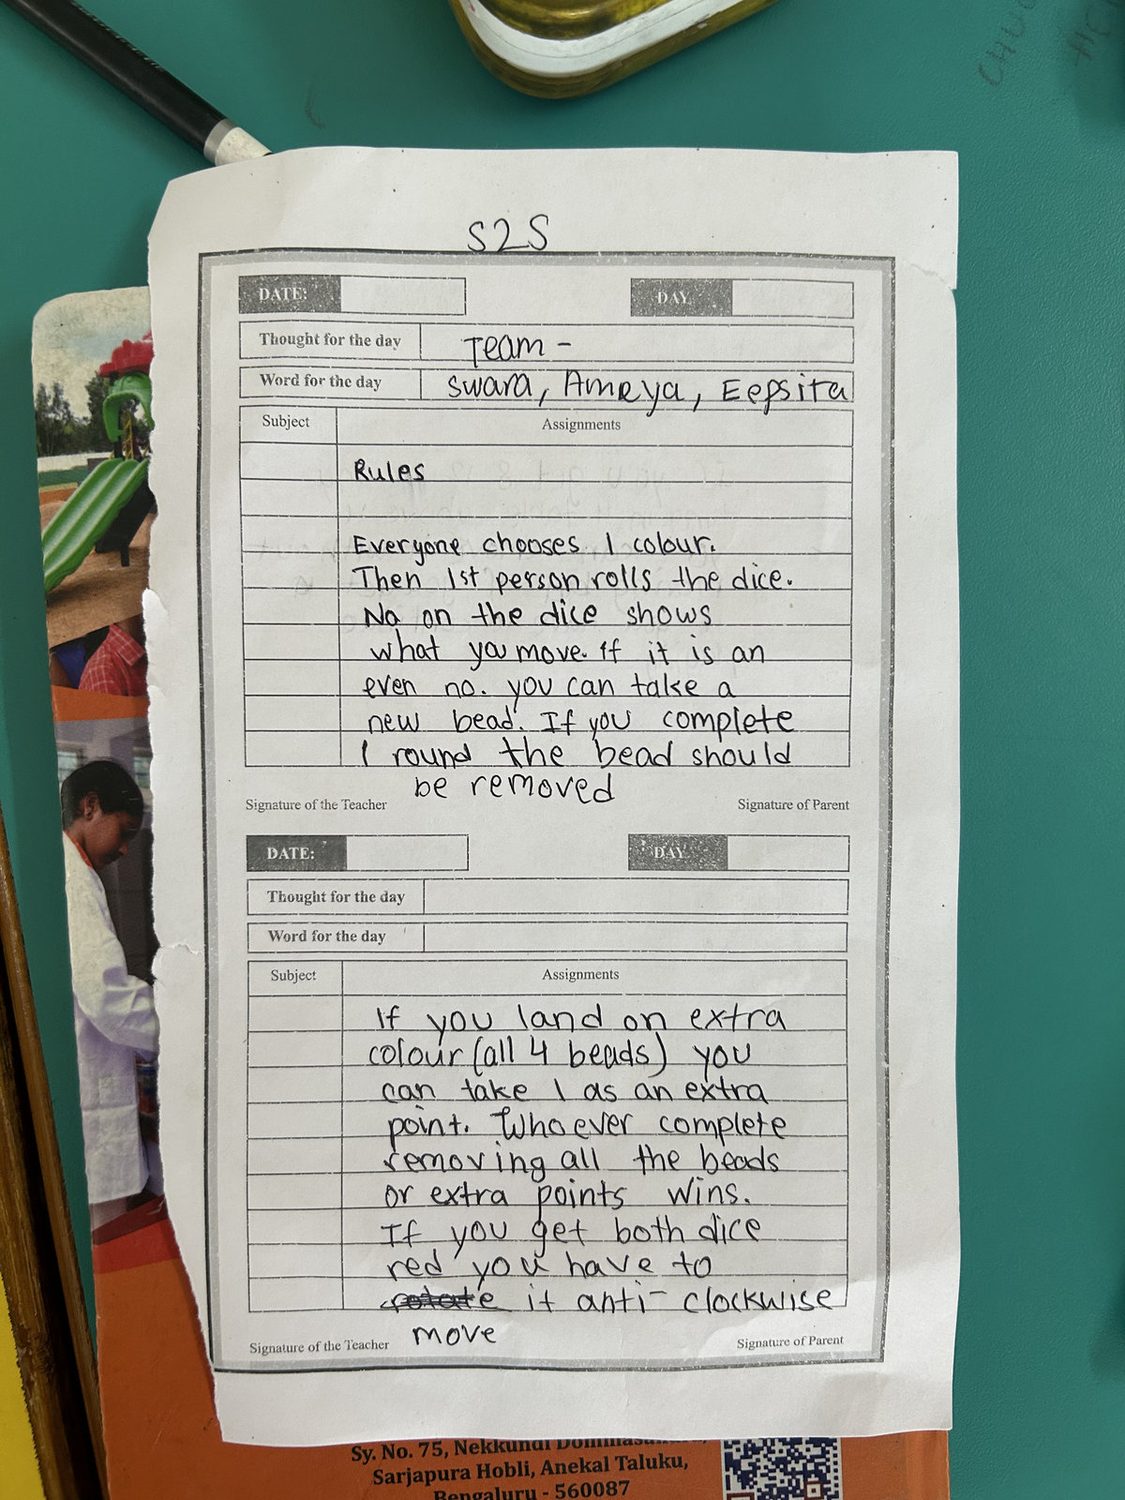 S2S
DATE:
DAY
Thought for the day
Team -
Word for the day
Swara, Ameya, Eepsita
Subject
Assignments
Rules
Everyone chooses 1 colour.
Then 1st person rolls the dice.
No on the dice shows
what you move. If it is an
even no. you can take a
new bead. If you complete
1 round the bead should
be removed
Signature of the Teacher
Signature of Parent
DATE:
DAY
Thought for the day
Word for the day
Subject
Assignments
If you land on extra
colour (all 4 beads) you
can take 1 as an extra
point. Whoever complete
removing all the beads
or extra points wins.
If you get both dice
red you have to
rotate it anti-clockwise
move
Signature of the Teacher
Signature of Parent
Sy. No. 75, Nekkundi
Sarjapura Hobli, Anekal Taluku,
Bengaluru - 560087